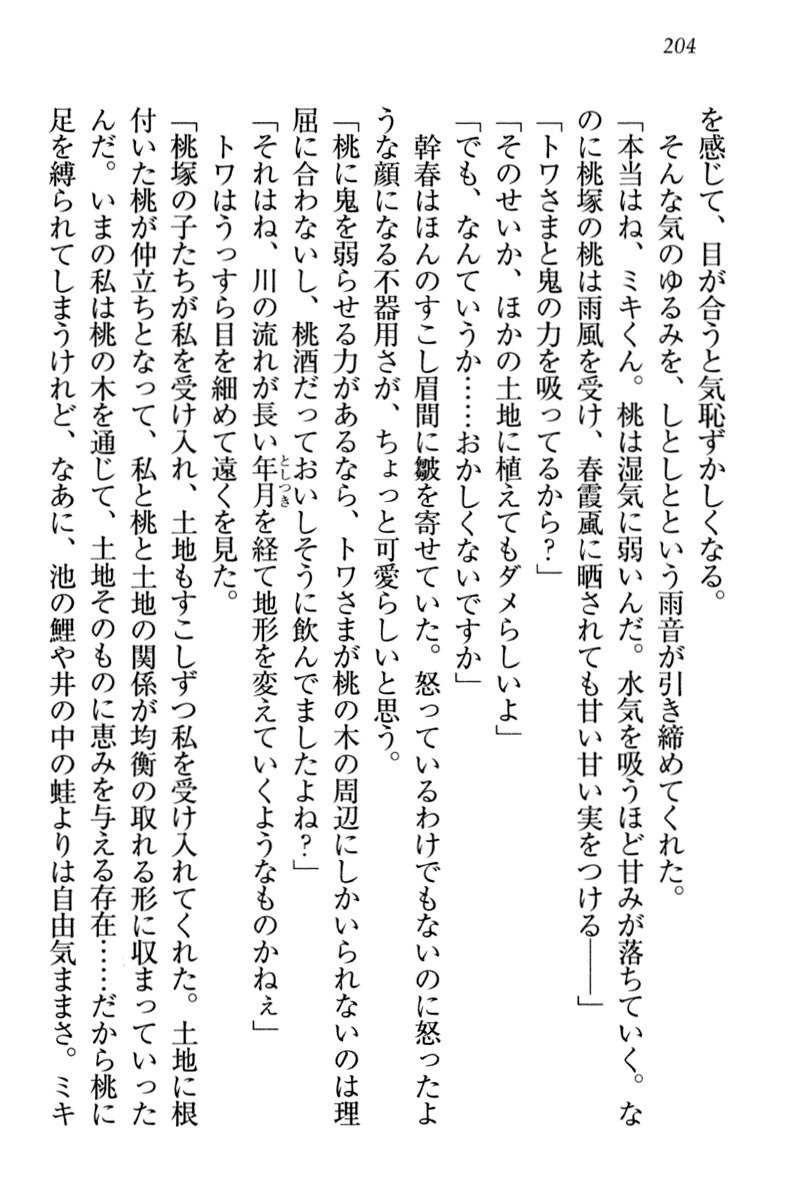 204
を感じて、目が合うと気恥ずかしくなる。
　そんな気のゆるみを、しとしとという雨音が引き締めてくれた。
「本当はね、ミキくん。桃は湿気に弱いんだ。水気を吸うほど甘みが落ちていく。な
のに桃塚の桃は雨風を受け、春霞颪に晒されても甘い甘い実をつける――」
「トワさまと鬼の力を吸ってるから？」
「そのせいか、ほかの土地に植えてもダメらしいよ」
「でも、なんていうか……おかしくないですか」
　幹春はほんのすこし眉間に皺を寄せていた。怒っているわけでもないのに怒ったよ
うな顔になる不器用さが、ちょっと可愛らしいと思う。
「桃に鬼を弱らせる力があるなら、トワさまが桃の木の周辺にしかいられないのは理
屈に合わないし、桃酒だっておいしそうに飲んでましたよね？」
「それはね、川の流れが長い年月としつきを経て地形を変えていくようなものかねぇ」
　トワはうっすら目を細めて遠くを見た。
「桃塚の子たちが私を受け入れ、土地もすこしずつ私を受け入れてくれた。土地に根
付いた桃が仲立ちとなって、私と桃と土地の関係が均衡の取れる形に収まっていった
んだ。いまの私は桃の木を通じて、土地そのものに恵みを与える存在……だから桃に
足を縛られてしまうけれど、なあに、池の鯉や井の中の蛙よりは自由気ままさ。ミキ